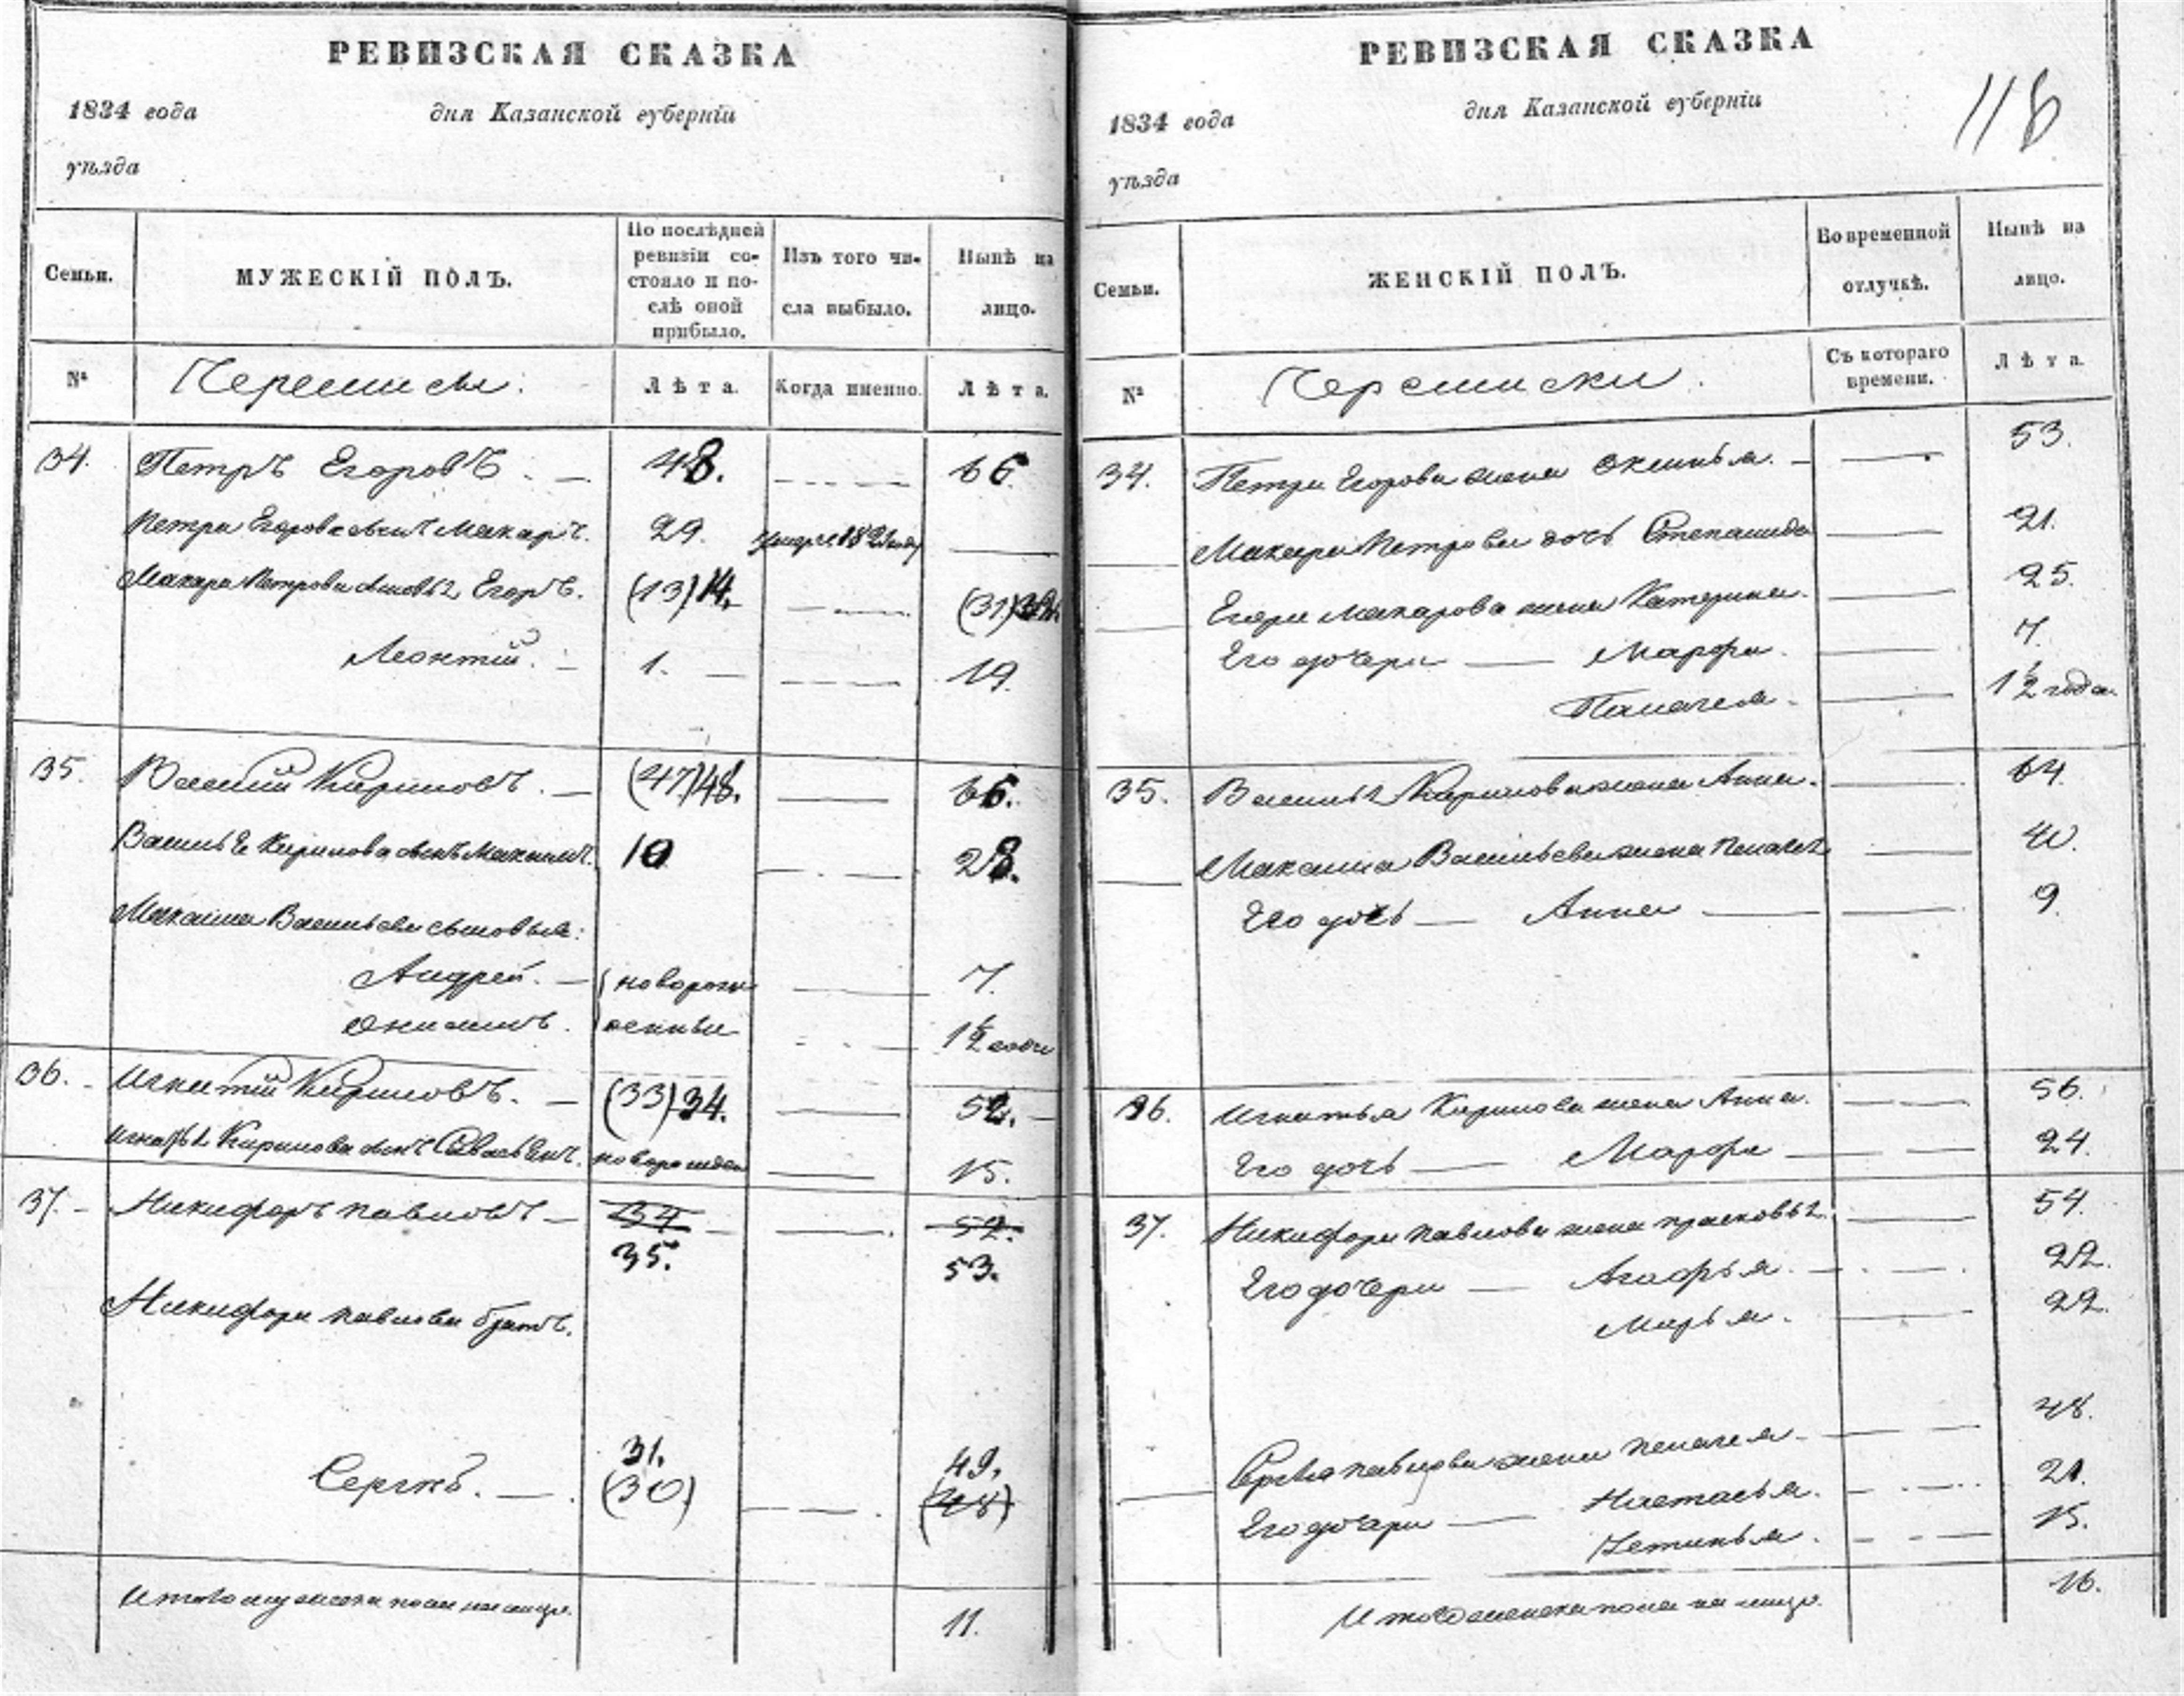 РЕВИЗСКАЯ СКАЗКА
1834 года дня Казанской губерніи
уѣзда
Семьи. МУЖЕСКІЙ ПОЛЪ. По послѣдней ревизіи состояло и послѣ оной прибыло. Изъ того числа выбыло. Нынѣ на лицо.
№ Черемисы. Лѣта. Когда именно. Лѣта.
34. Петръ Егоровъ. 48. 66.
Петра Егорова сынъ Макаръ. 29. умеръ 1821 году
Макара Петрова сыновья Егоръ. (13) 14. (31)
Леонтій. 1. 19.
35. Василій Кириловъ. (47) 48. 66.
Василья Кирилова сынъ Максимъ. 10 28.
Максима Васильева сыновья:
Андрей. новорож 7.
Онисимъ. денные 1 1/2 года
36. Игнатій Кириловъ. (33) 34. 52.
Игнатья Кирилова сынъ Савельей новорожден 15.
37. Никифоръ Павловъ 34 52.
35. 53.
Никифора Павлова братъ.
31. 49.
Сергѣй. (30) (48)
Итого мужеска пола на лицо. 11.
РЕВИЗСКАЯ СКАЗКА
118
1834 года дня Казанской губерніи
уѣзда
Семьи. ЖЕНСКІЙ ПОЛЪ. Во временной отлучкѣ. Нынѣ на лицо.
№ Черемиски. Съ котораго времени. Лѣта.
34. Петра Егорова жена Оксинья. 53.
Макара Петрова дочь Степанида 21.
Егора Макарова жена Катерина. 25.
Его дочери Марфа. 7.
Палагея. 1 1/2 года
35. Василья Кирилова жена Анна. 64.
Максима Васильева жена Пелагея 40.
Его дочь Анна 9.
36. Игнатья Кирилова жена Анна. 56.
Его дочь Марфа 24.
37. Никифора Павлова жена Прасковья. 54.
Его дочери Агафья. 22.
Марья. 22.
Сергѣя Павлова жена Пелагея 48.
Его дочери Настасья. 21.
Устинья. 15.
Итого женска пола на лицо. 16.